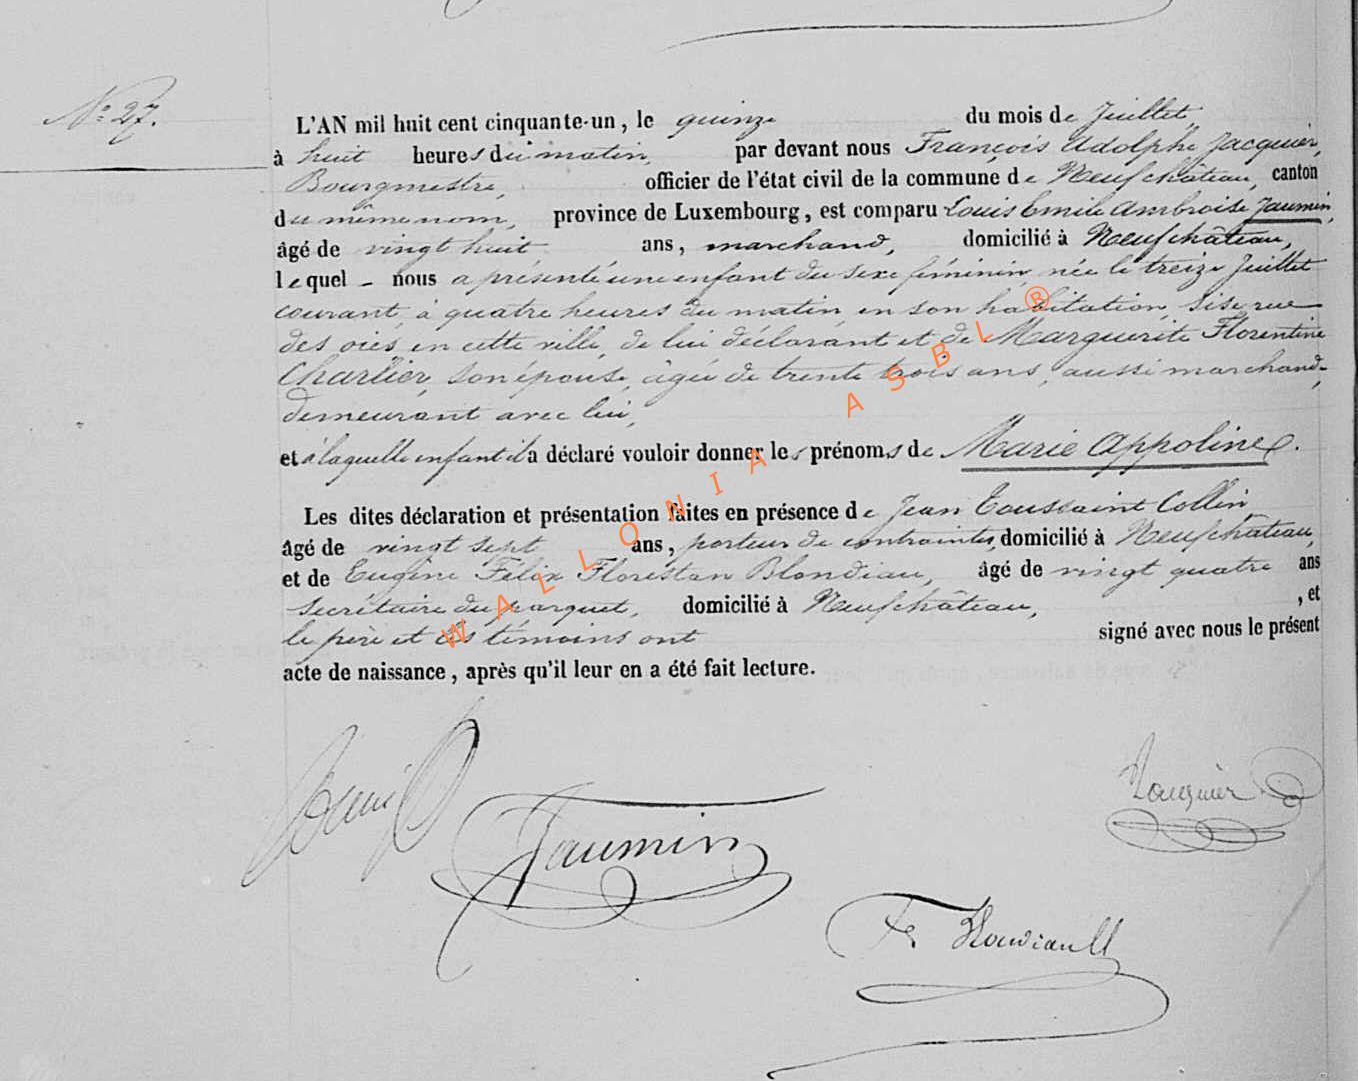 N.° 27.
L'AN mil huit cent cinquante-un, le quinze du mois de Juillet,
à huit heures du matin, par devant nous François Adolphe Jacquier,
Bourgmestre, officier de l'état civil de la commune de Neufchâteau, canton
du même nom, province de Luxembourg, est comparu Louis Emile Ambroise Jaumin,
âgé de vingt huit ans, marchand, domicilié à Neufchâteau,
lequel - nous a présenté une enfant du sexe féminin, née le treize Juillet
courant, à quatre heures du matin, en son habitation, sise rue
des oies en cette ville, de lui déclarant et de Marguerite Florentine
Charlier, son épouse, âgée de trente trois ans, aussi marchande,
demeurant avec lui,
et à laquelle enfant il a déclaré vouloir donner les prénoms de Marie Appoline.
Les dites déclaration et présentation faites en présence de Jean Toussaint Collin,
âgé de vingt sept ans, porteur de contraintes, domicilié à Neufchâteau,
et de Eugène Félix Florestan Blondiau, âgé de vingt quatre ans
secrétaire du parquet, domicilié à Neufchâteau, , et
le père et les témoins ont signé avec nous le présent
acte de naissance, après qu'il leur en a été fait lecture.
Jacquier
Jaumin
WALLONIA ASBL ®